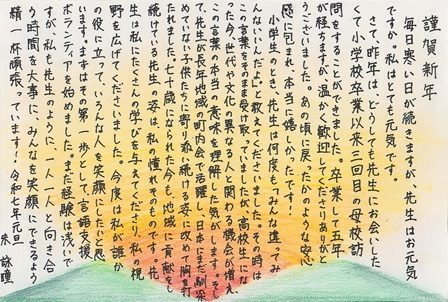 謹賀新年
毎日寒い日が続きますが、先生はお元気
ですか。私はとても元気です。
さて、昨年は、どうしても先生にお会いした
くて小学校卒業以来三回目の母校訪
問をすることができました。卒業して五年
が経ちますが、温かく歓迎してくださりありがと
うございました。あの頃に戻ったかのような安心
感に包まれ、本当に嬉しかったです！
小学生のとき、先生は何度も「みんな違ってみ
んないいんだよ」と教えてくださいました。その時は
この言葉をそのまま受け取っていましたが、高校生にな
った今、世代や文化の異なる人と関わる機会が増え、
この言葉の本当の意味を理解した気がします。そし
て、先生が長年地域の町内会で活躍し、日本にまだ馴染
めていない子供たちに寄り添い続ける姿に改めて胸を打
たれました。七十歳になられた今も、地域に貢献をし
続けている先生の姿は、私の憧れそのものです。先
生は私にたくさんの学びを与えてくださり、私の視
野を広げてくださいました。今度は私が誰か
の役に立って、いろんな人を笑顔にしたいと思
います。まずはその第一歩として、言語支援
ボランティアを始めました。まだ経験は浅いで
すが、私も先生のように、一人一人と向き合
う時間を大事に、みんなを笑顔にできるよう
精一杯頑張っています！令和七年元旦
朱 詠瞳